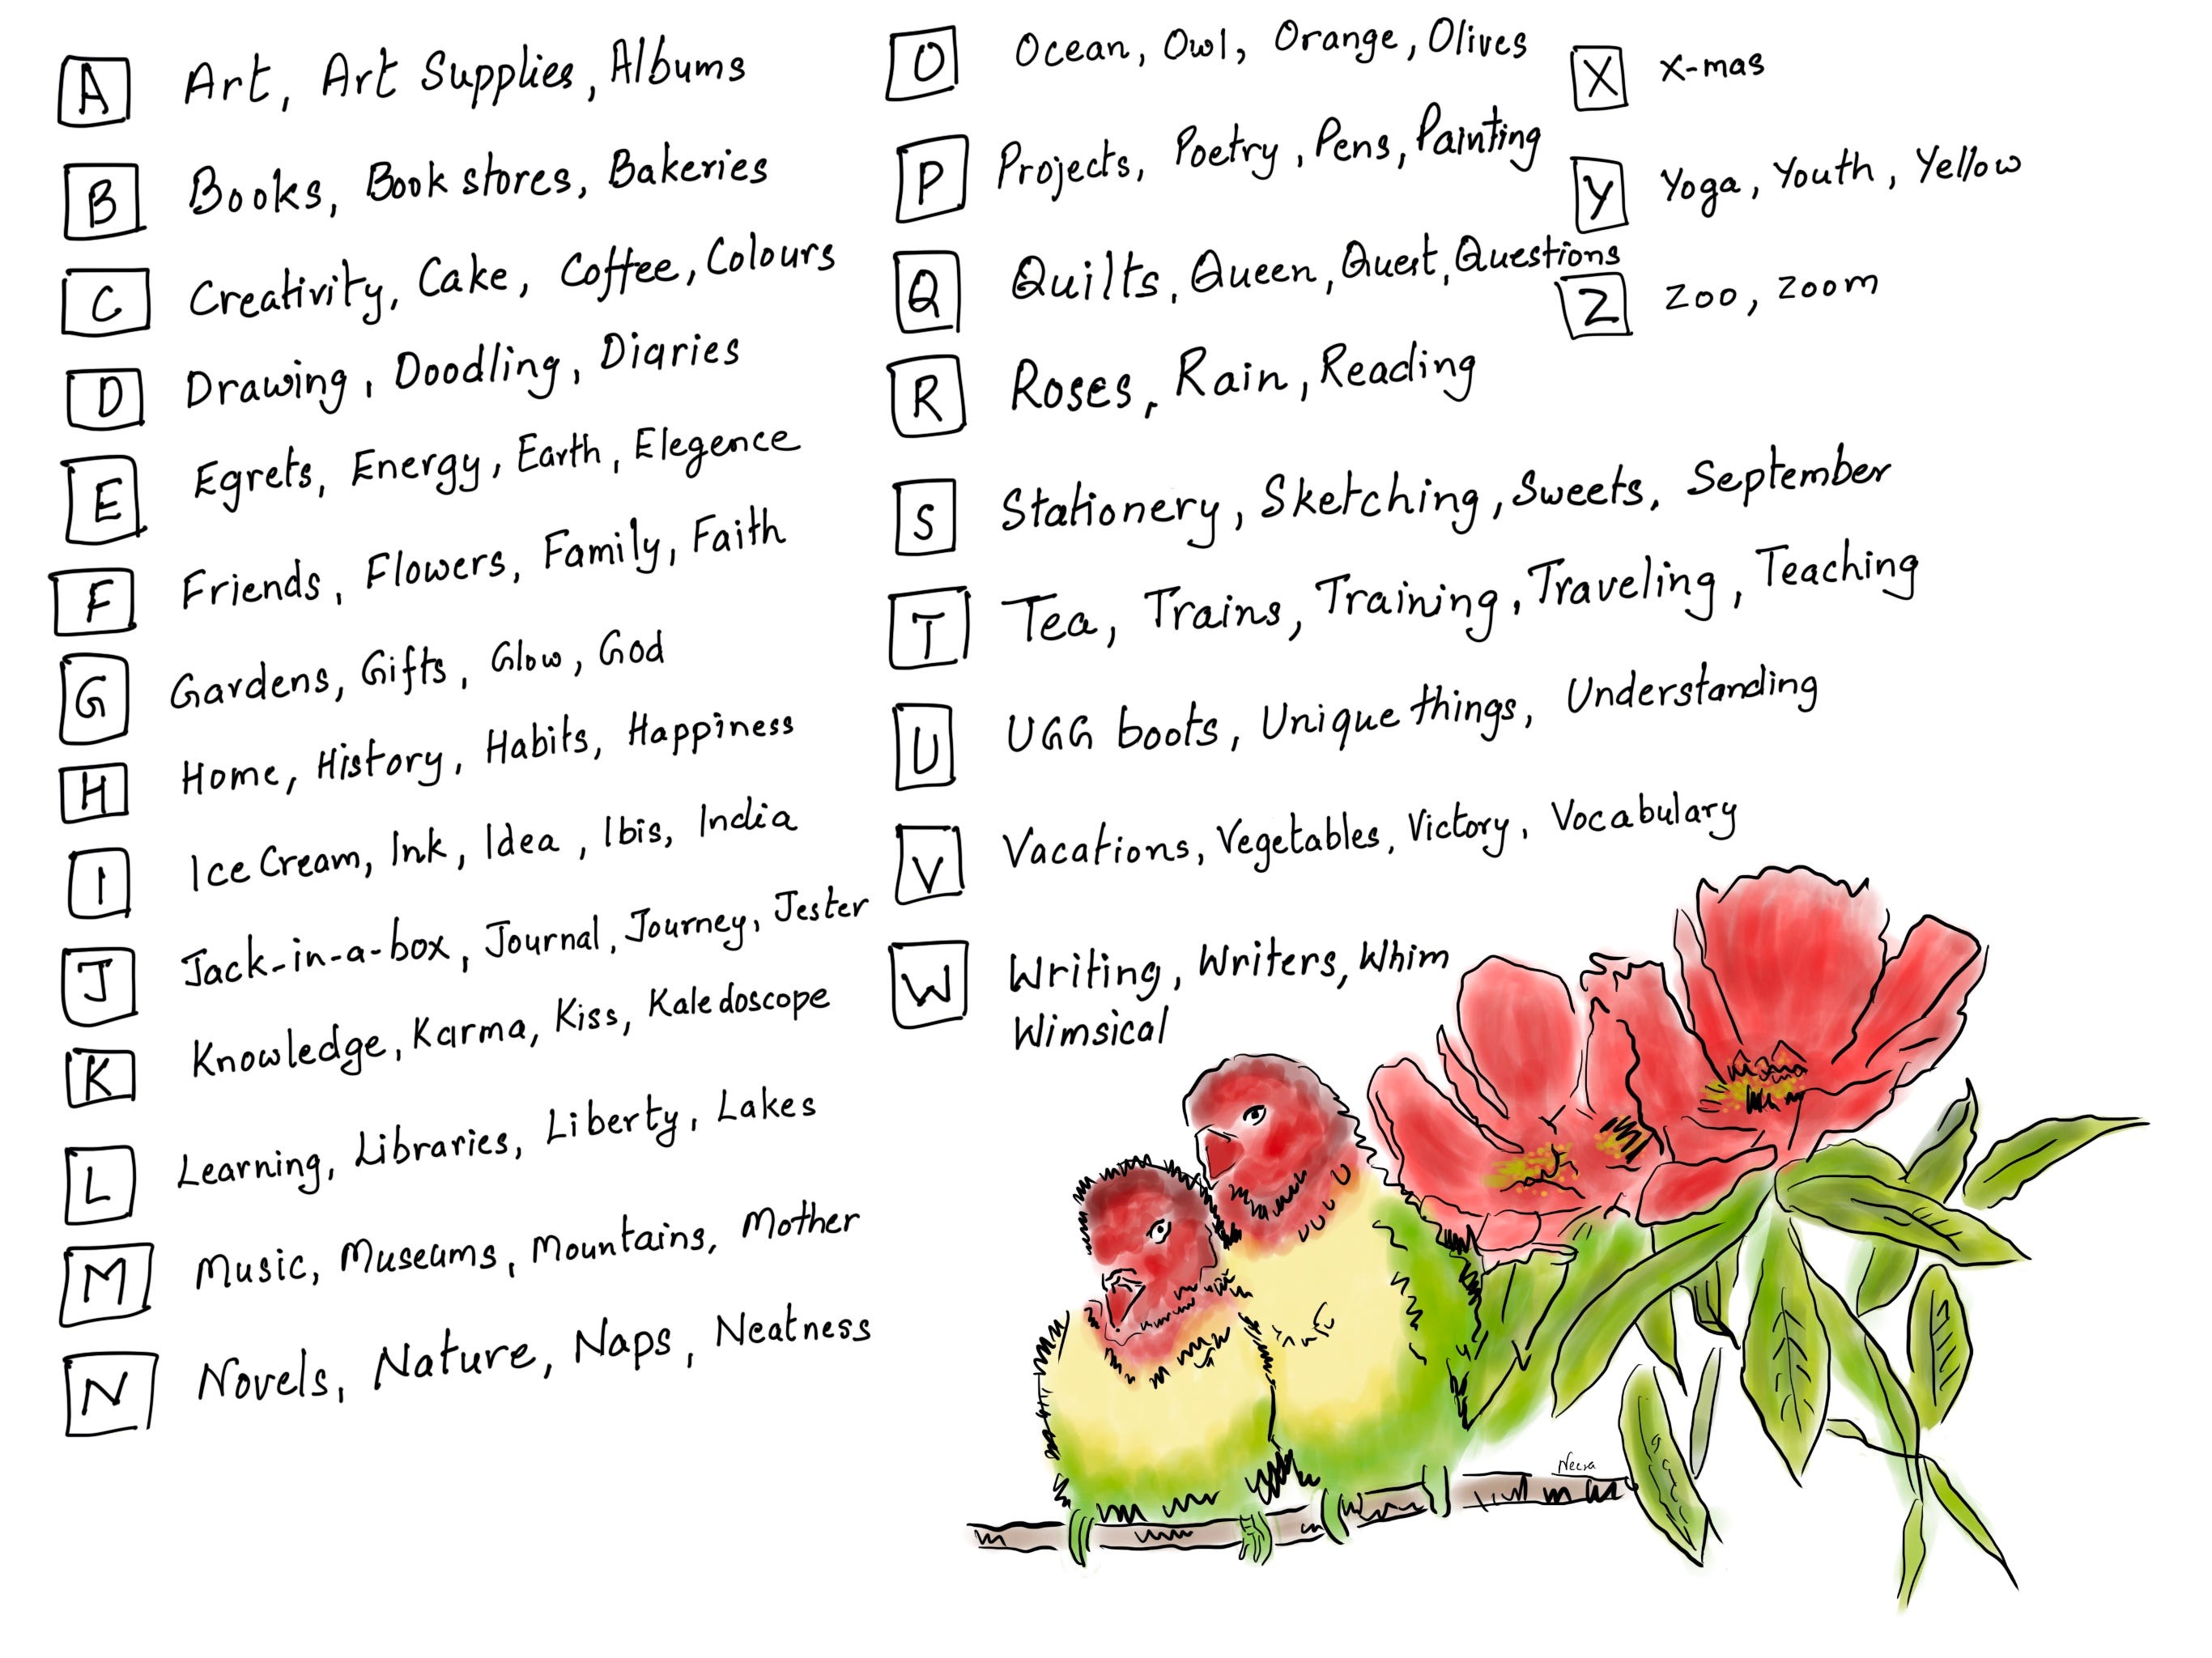 A Art, Art Supplies, Albums
B Books, Book stores, Bakeries
C Creativity, Cake, Coffee, Colours
D Drawing, Doodling, Diaries
E Egrets, Energy, Earth, Elegence
F Friends, Flowers, Family, Faith
G Gardens, Gifts, Glow, God
H Home, History, Habits, Happiness
I Ice Cream, Ink, Idea, Ibis, India
J Jack-in-a-box, Journal, Journey, Jester
K Knowledge, Karma, Kiss, Kaledoscope
L Learning, Libraries, Liberty, Lakes
M Music, Museums, Mountains, Mother
N Novels, Nature, Naps, Neatness
O Ocean, Owl, Orange, Olives
P Projects, Poetry, Pens, Painting
Q Quilts, Queen, Quest, Questions
R Roses, Rain, Reading
S Stationery, Sketching, Sweets, September
T Tea, Trains, Training, Traveling, Teaching
U UGG boots, Unique things, Understanding
V Vacations, Vegetables, Victory, Vocabulary
W Writing, Writers, Whim
Wimsical
X X-mas
Y Yoga, Youth, Yellow
Z Zoo, Zoom